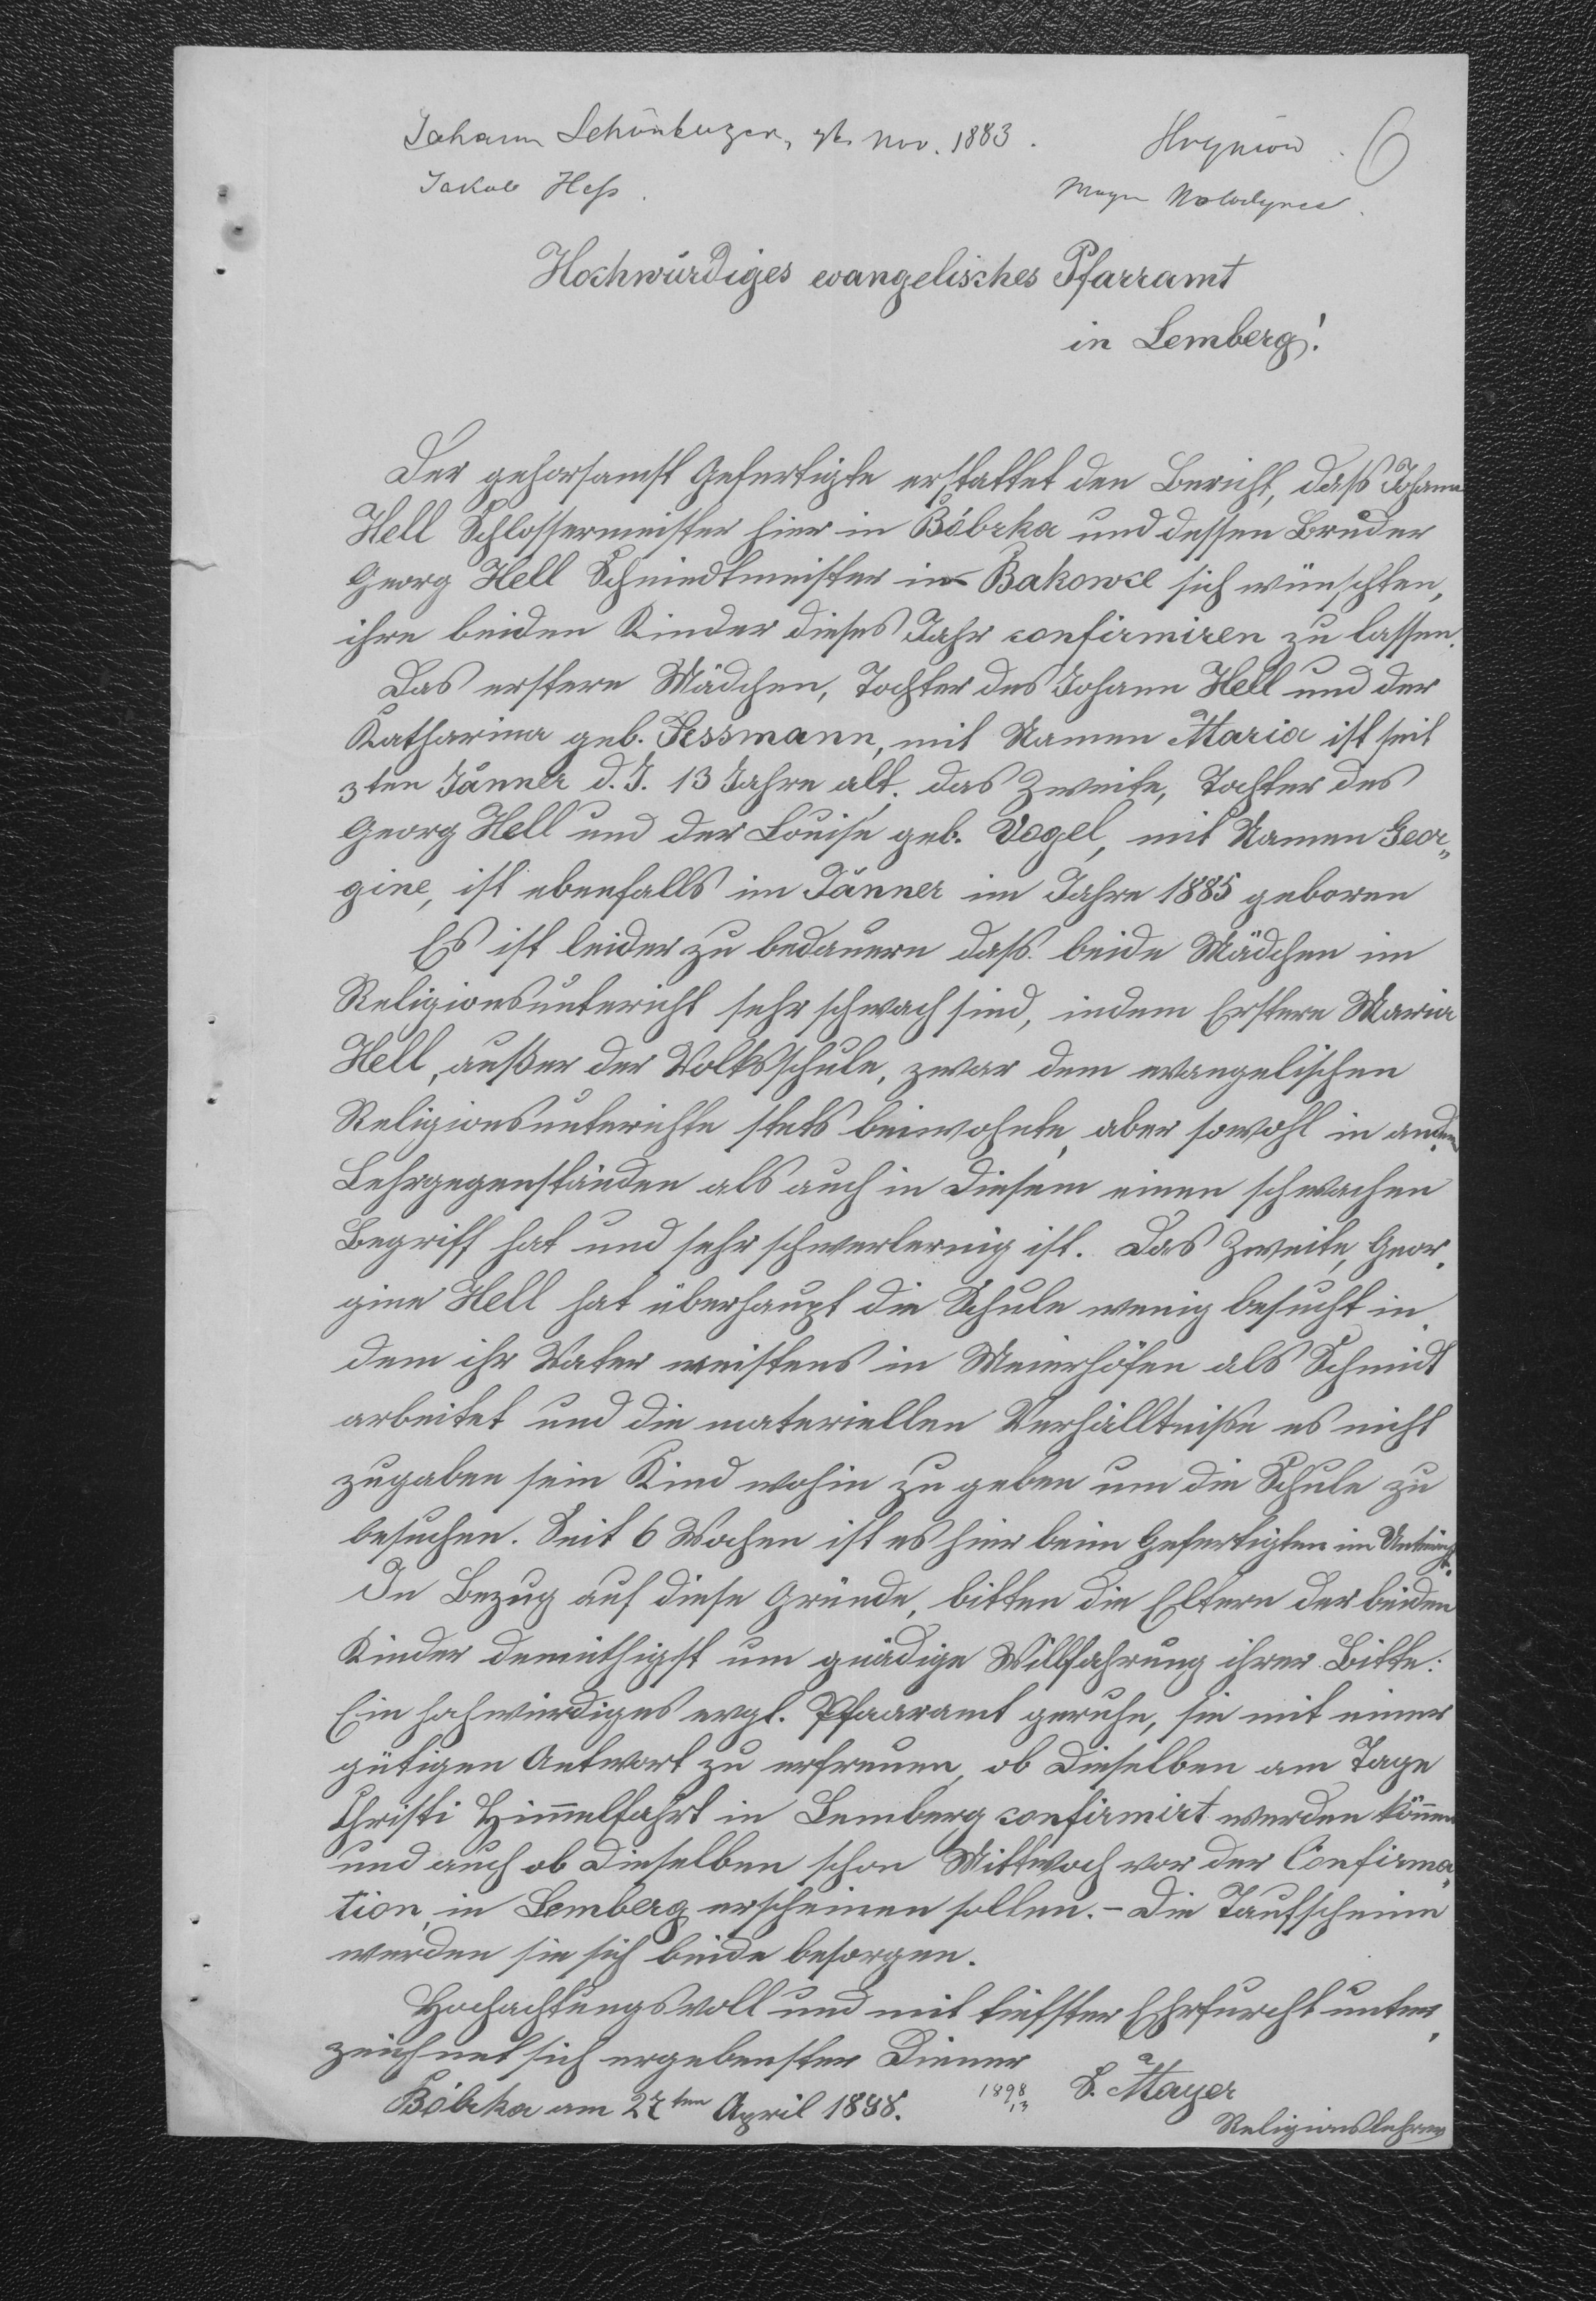 Johann Schönburger, gb. Nov. 1883. Hryniow. 6
Jakob Heß.
Hochwürdiges evangelisches Pfarramt
in Lemberg!
Der gehorsamst Gefertigte erstattet den Bericht, daß Johann
Hell Schlossermeister hier in Bóbrka und dessen Bruder
Georg Hell Schmiedtmeister in Bakowce sich wünschten,
ihre beiden Kinder dieses Jahr confirmiren zu lassen.
Das erstere Mädchen, Tochter des Johann Hell und der
Katharina geb. Fessmann, mit Namen Maria ist seit
3ten Jänner d. J. 13 Jahre alt. das Zweite, Tochter des
Georg Hell und der Louise geb. Vogel, mit Namen Geor„
gine, ist ebenfalls im Jänner im Jahre 1885 geboren
Es ist leider zu bedauern daß beide Mädchen im
Religionsuntericht sehr schwach sind, indem Erstere Maria
Hell, außer der Volksschule, zwar dem evangelischen
Religionsunterichte stets beiwohnte, aber sowohl in andern
Lehrgegenständen als auch in diesem einen schwachen
Begriff hat und sehr schwerlernig ist. Das Zweite, Geor„
gine Hell hat überhaupt die Schule wenig besucht in„
dem ihr Vater meistens in Meierhöfen als Schmidt
arbeitet und die materiellen Verhälltniße es nicht
zugaben sein Kind wohin zu geben um die Schule zu
besuchen. Seit 6 Wochen ist es hier beim Gefertigten im Untericht.
In Bezug auf diese Gründe, bitten die Eltern der beiden
Kinder demüthigst um gnädige Willfahrung ihrer Bitte:
Ein hochwürdiges evgl. Pfaaramt geruhe, sie mit einer
gütigen Antwort zu erfreuen, ob dieselben am Tage
Christi Himmelfahrt in Lemberg confirmirt werden können
und auch ob dieselben schon Mittwoch vor der Confirma„
tion, in Lemberg erscheinen sollen. – Die Taufscheine
werden sie sich beide besorgen.
Hochachtungsvoll und mit tiefster Ehrfurcht unter„
zeichnet sich ergebenster Diener
Bóbrka am 27ten April 1898. 1898 S. Mayer
13
Religionslehrer